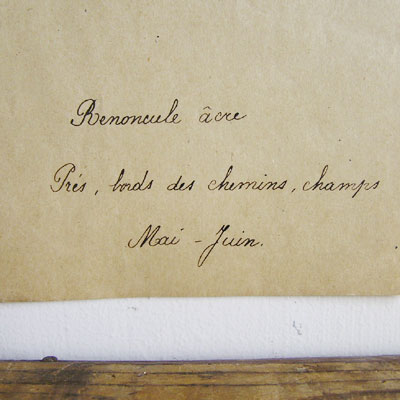 Renoncule âcre
Prés, bords des chemins, champs
Mai - Juin.